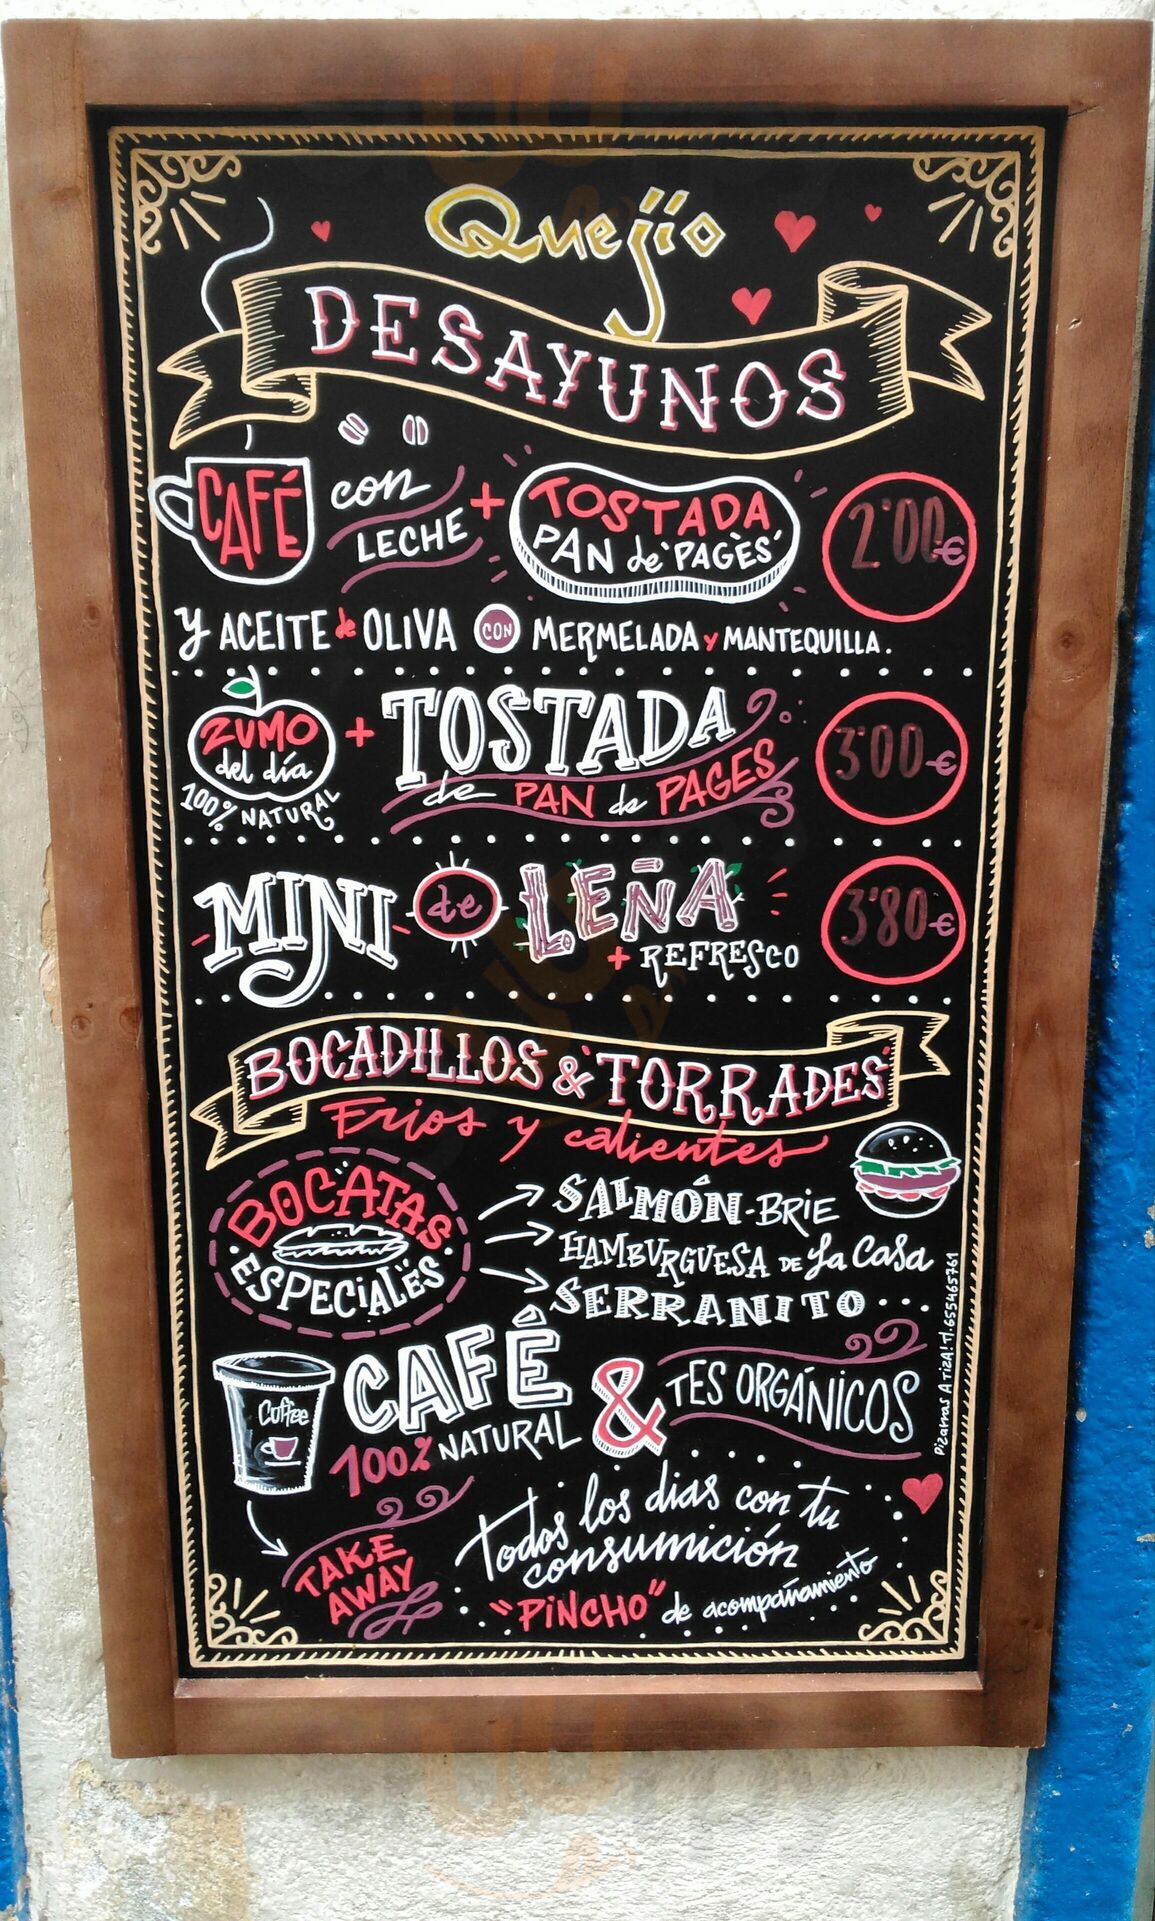 Quejío
DESAYUNOS
CAFÉ con LECHE + TOSTADA PAN de 'PAGÈS' 2'00€
y ACEITE de OLIVA CON MERMELADA y MANTEQUILLA.
ZUMO del día 100% NATURAL + TOSTADA de PAN de PAGES 3'00€
MINI de LEÑA + REFRESCO 3'80€
BOCADILLOS & 'TORRADES'
Frios y calientes
BOCATAS ESPECIALES
SALMÓN-BRIE
HAMBURGUESA DE La Casa
SERRANITO...
Coffee
CAFÉ 100% NATURAL & TES ORGÁNICOS
TAKE AWAY
Todos los dias con tu
consumición
"PINCHO" de acompañamiento
Pizarras A TIZA! Tl. 655465761